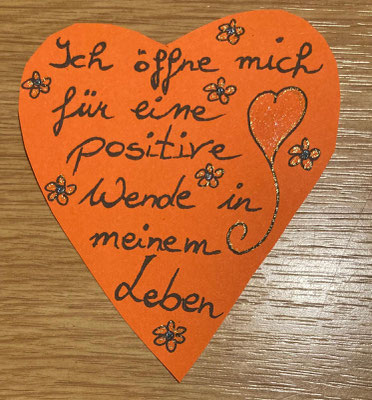 Ich öffne mich
für eine
positive
Wende in
meinem
Leben